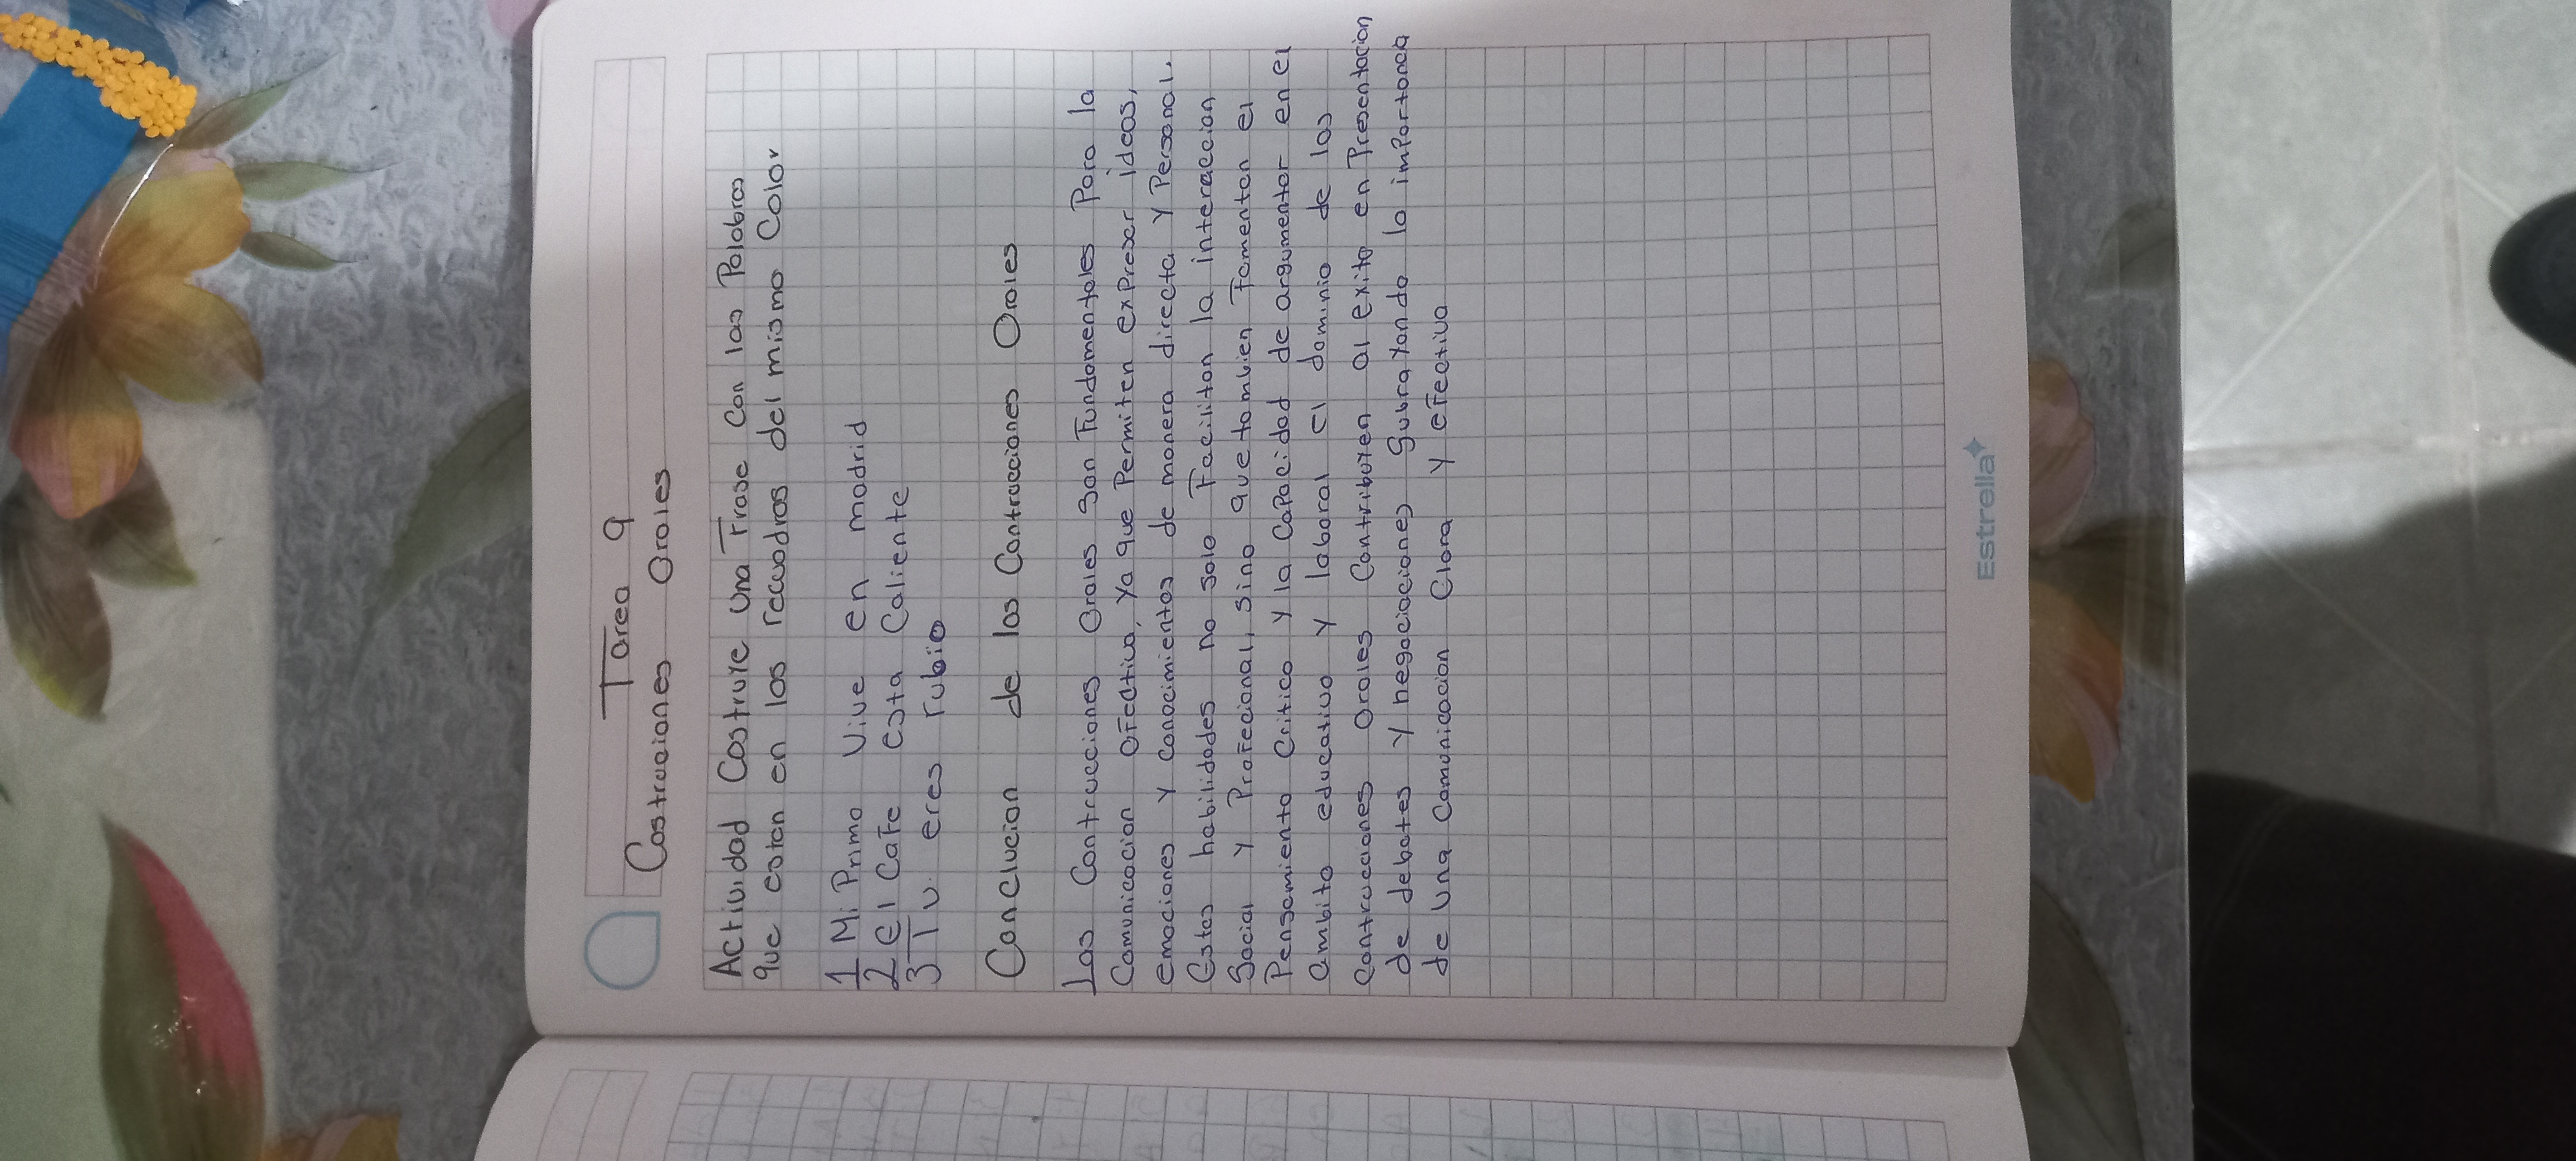 Tarea 9
Costruciones Orales
Actividad Costruye una Frase Con las Palabras
que estan en los recuadros del mismo Color
1 Mi Primo Vive en madrid
2 El Cafe esta Caliente
3 Tu eres rubio
Conclucion de las Contrucciones Orales
Las Contrucciones Orales son Fundamentales Para la
Comunicacion efectiva, Ya que Permiten expresar ideas,
emociones y conocimientos de manera directa y Personal.
Estas habilidades no solo Facilitan la interaccion
Social y Profecional, sino que tambien Fomentan el
Pensamiento Critico y la Capacidad de argumentar en el
ambito educativo y laboral el dominio de las
contrucciones orales Contribuyen al exito en Presentacion
de debates y negociaciones Subrayando la importanca
de Una Comunicacion Clara y efectiva
Estrella